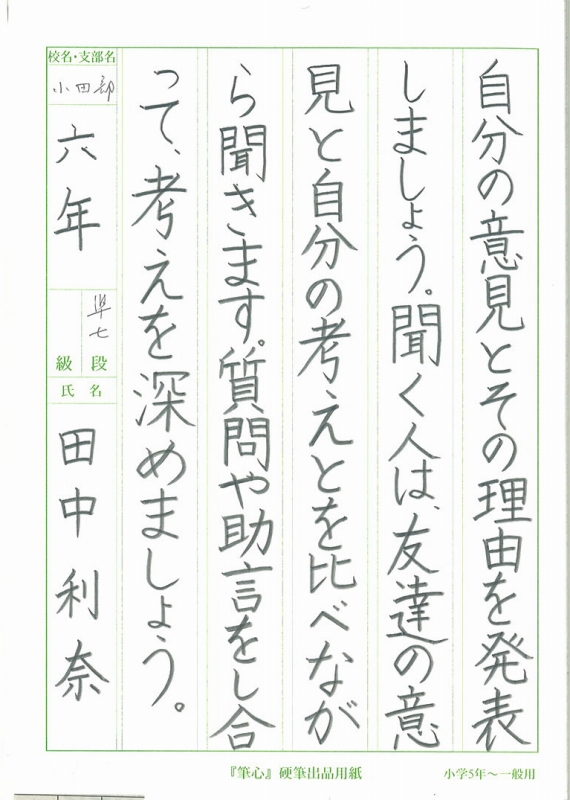 自分の意見とその理由を発表
しましょう。聞く人は、友達の意
見と自分の考えとを比べなが
ら聞きます。質問や助言をし合
って、考えを深めましょう。
校名・支部名
小田部
六年
準七
級 段
氏 名
田中利奈
『筆心』硬筆出品用紙
小学5年〜一般用